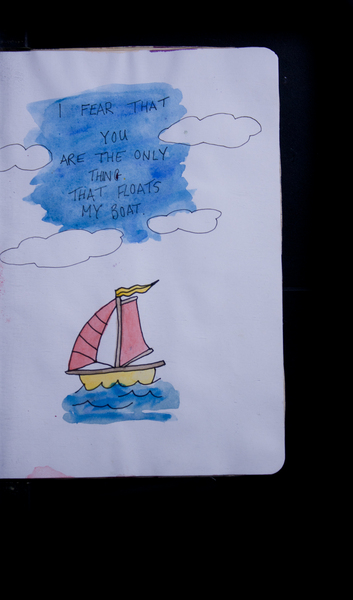 I FEAR THAT
YOU
ARE THE ONLY
THING
THAT FLOATS
MY BOAT.